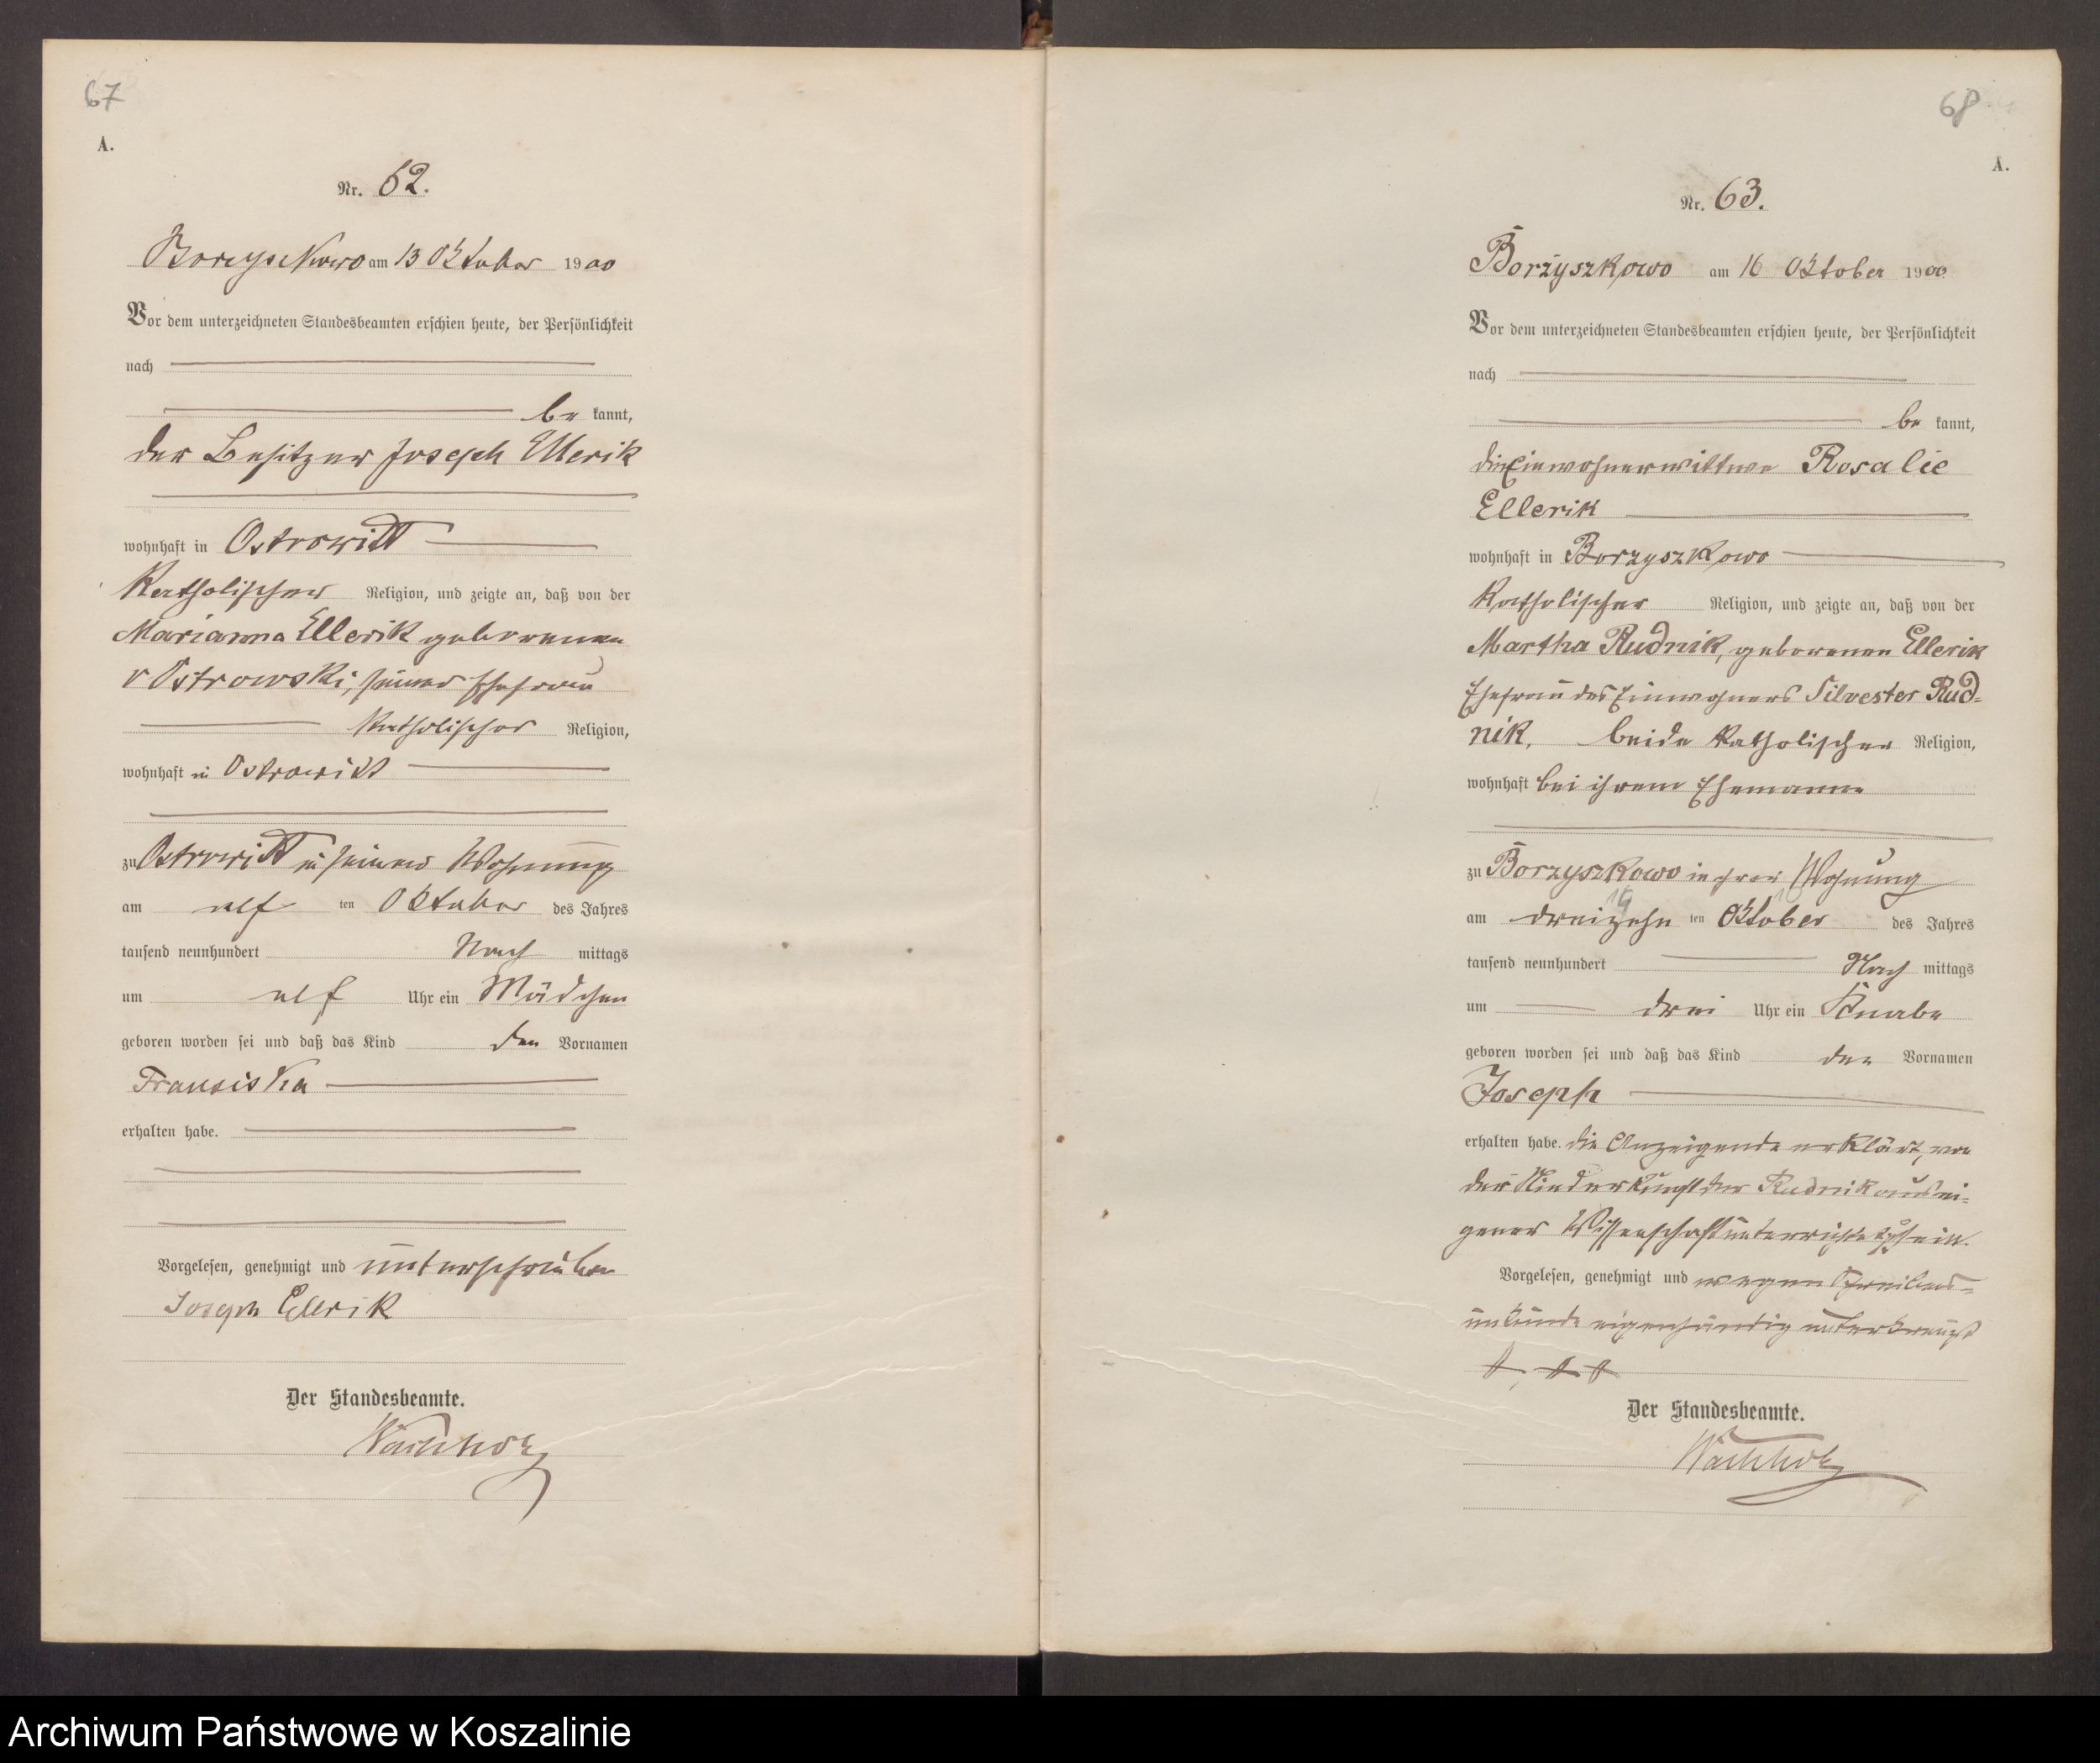 67
A.
Nr. 62.
Borzyszkowo am 13 Oktober 1900
Vor dem unterzeichneten Standesbeamten erschien heute, der Persönlichkeit
nach
be kannt,
der Besitzer Joseph Ellerik
wohnhaft in Ostrowitt
katholischer Religion, und zeigte an, daß von der
Marianna Ellerik geborenen
v Ostrowski, seiner Ehefrau
katholischer Religion,
wohnhaft in Ostrowitt
zu Ostrowitt in seiner Wohnung
am elf ten Oktober des Jahres
tausend neunhundert Nach mittags
um elf Uhr ein Mädchen
geboren worden sei und daß das Kind den Vornamen
Fransiska
erhalten habe.
Vorgelesen, genehmigt und unterschrieben
Joseph Ellerik
Der Standesbeamte.
Wachholz
68
A.
Nr. 63.
Borzyszkowo am 16 Oktober 1900
Vor dem unterzeichneten Standesbeamten erschien heute, der Persönlichkeit
nach
be kannt,
die Einwohnerwittwe Rosalie
Ellerik
wohnhaft in Borzyszkowo
katholischer Religion, und zeigte an, daß von der
Martha Rudnik, geborenen Ellerik
Ehefrau des Einwohners Silvester Rud-
nik, beide katholischer Religion,
wohnhaft bei ihrem Ehemanne
zu Borzyszkowo in ihrer Wohnung
am dreizehn ten Oktober des Jahres
tausend neunhundert Nach mittags
um drei Uhr ein Knabe
geboren worden sei und daß das Kind den Vornamen
Joseph
erhalten habe. die Anzeigende erklärt, von
der Niederkunft der Rudnik aus ei-
gener Wissenschaft unterrichtet zu sein.
Vorgelesen, genehmigt und wegen Schreibens-
unkunde eigenhändig unterkreuzt
+ + +
Der Standesbeamte.
Wachholz
Archiwum Państwowe w Koszalinie